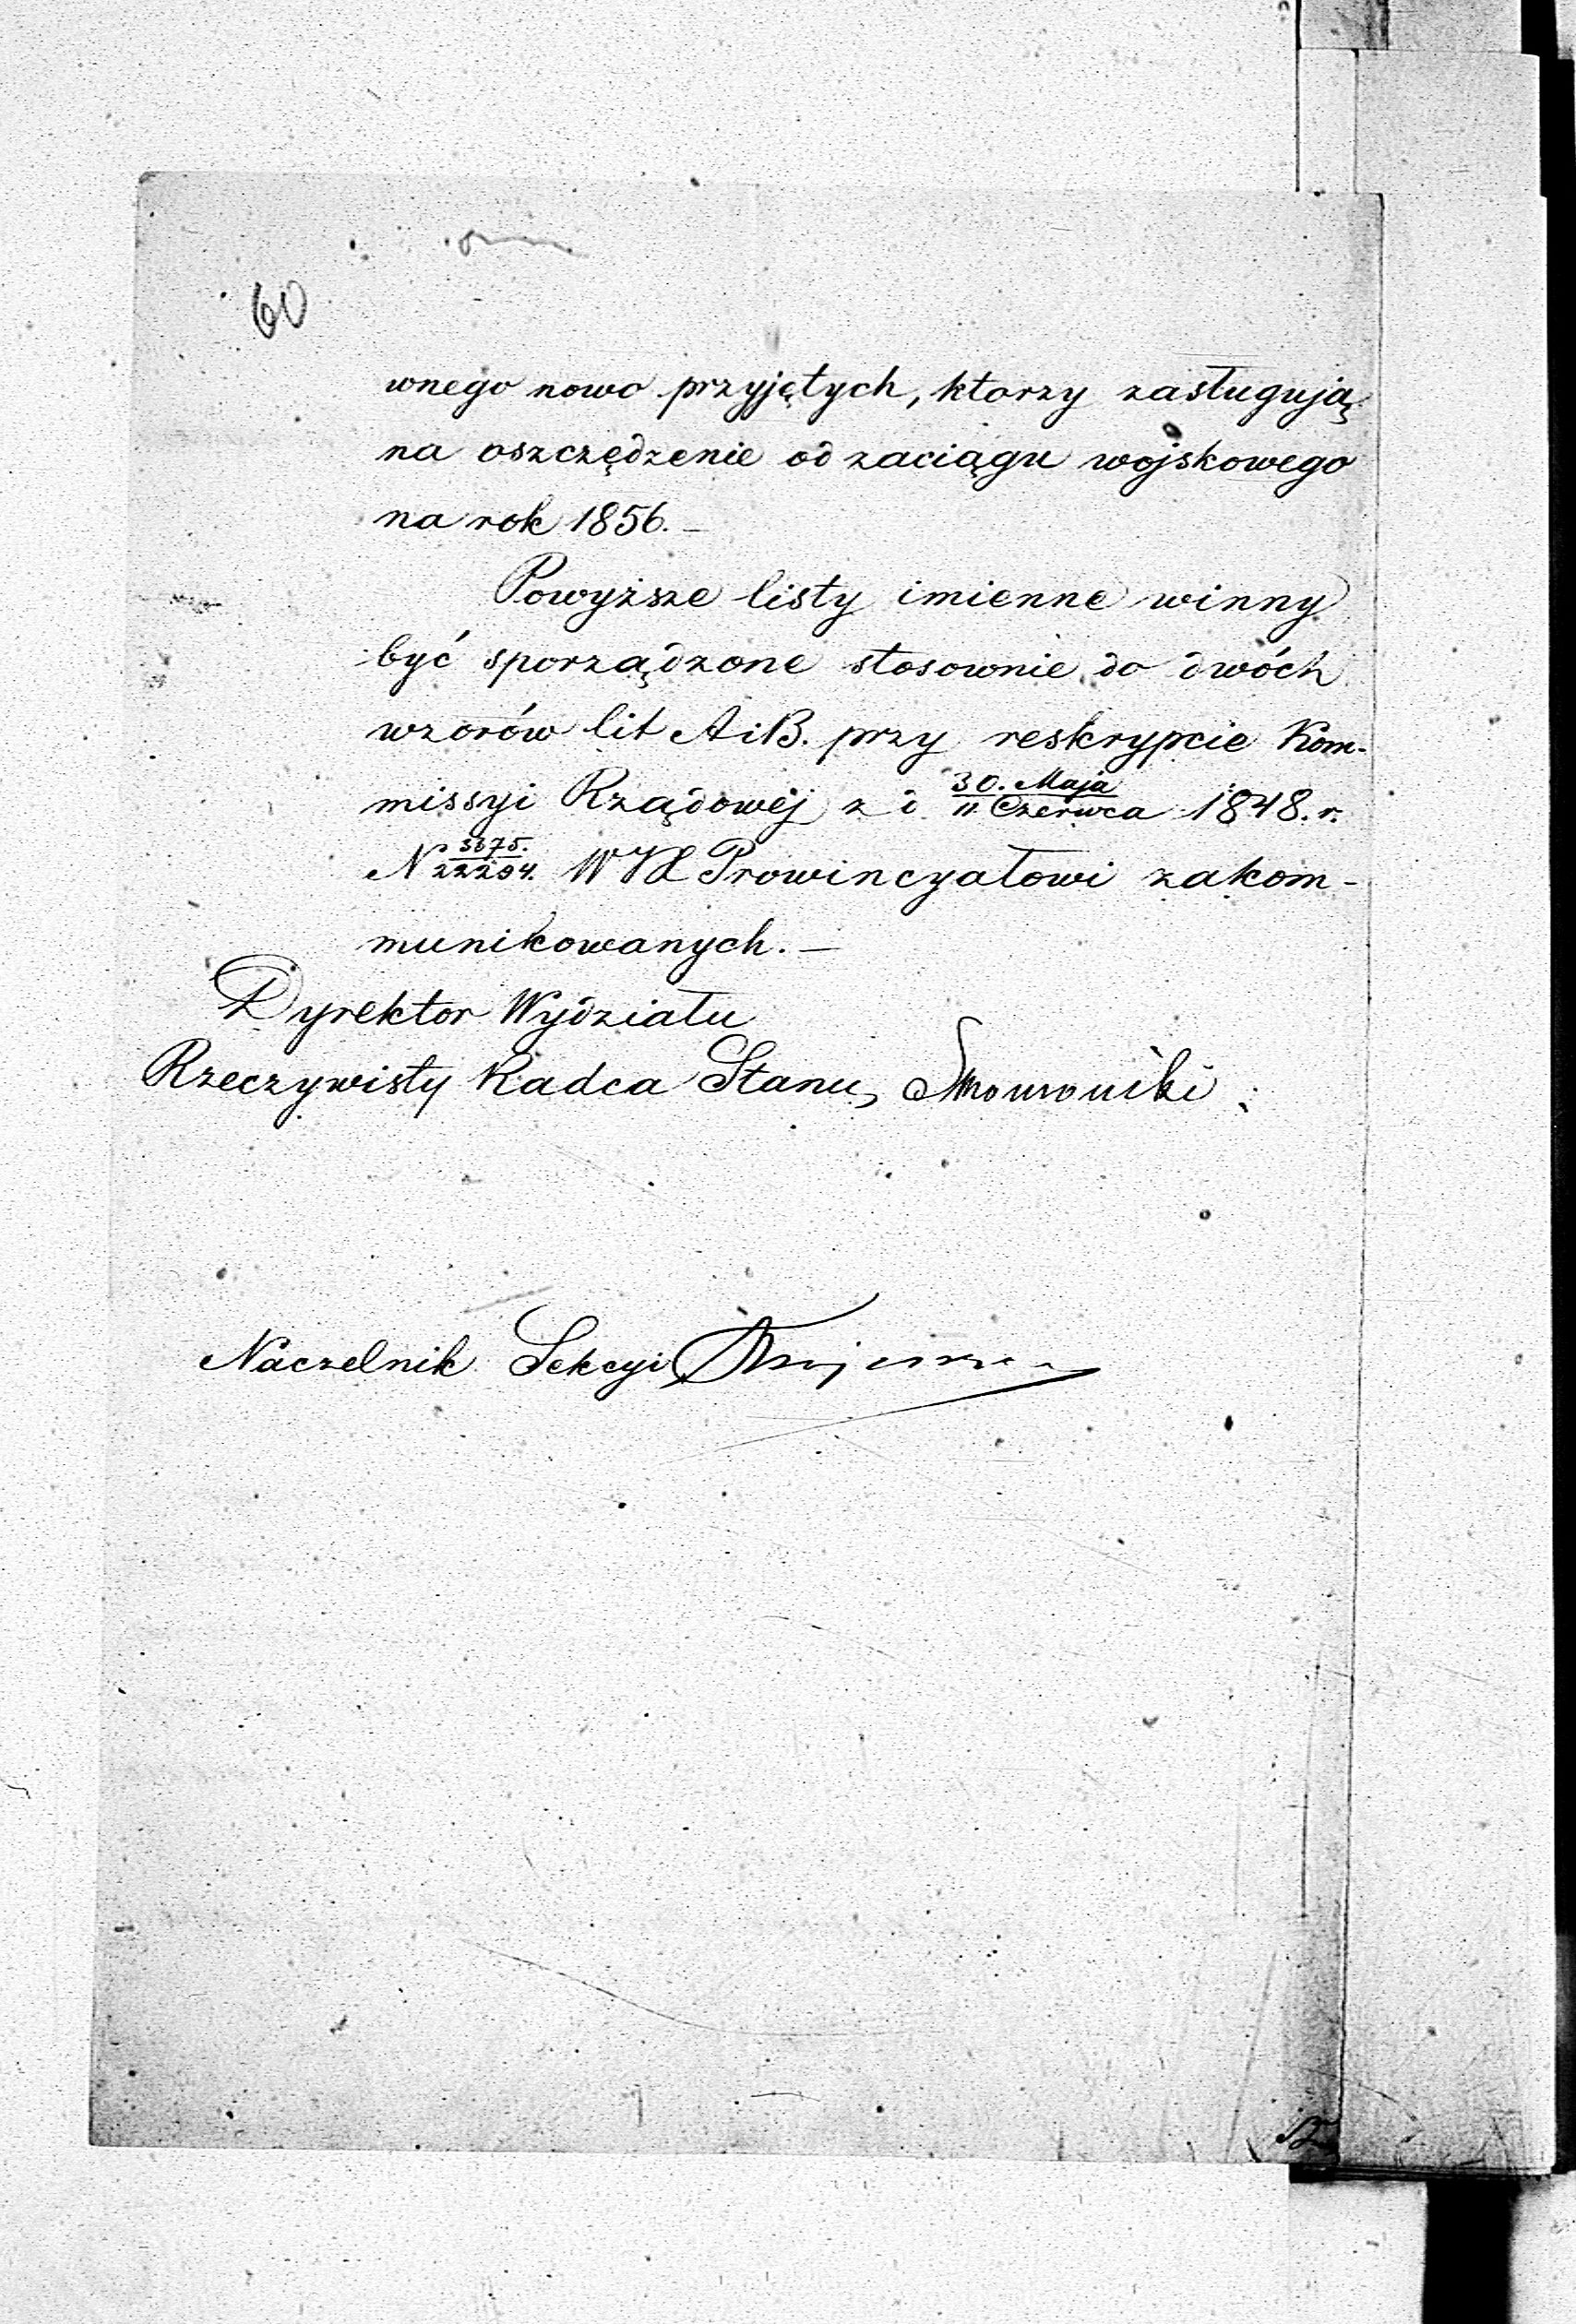 60
wnego nowo przyjętych, ktorzy zasługują
na oszczędzenie od zaciągu wojskowego
na rok 1856. –
Powyższe listy imienne winny
być sporządzone stosownie do dwóch
wzorów lit A i B. przy reskrypcie Kom-
missyi Rządowéj z d 30. Maja / 11 Czerwca 1848. r.
N 3675. / 22204. WX Prowincyałowi zakom-
munikowanych. –
Dyrektor Wydziału
Rzeczywisty Radca Stanu,
Naczelnik Sekcyi